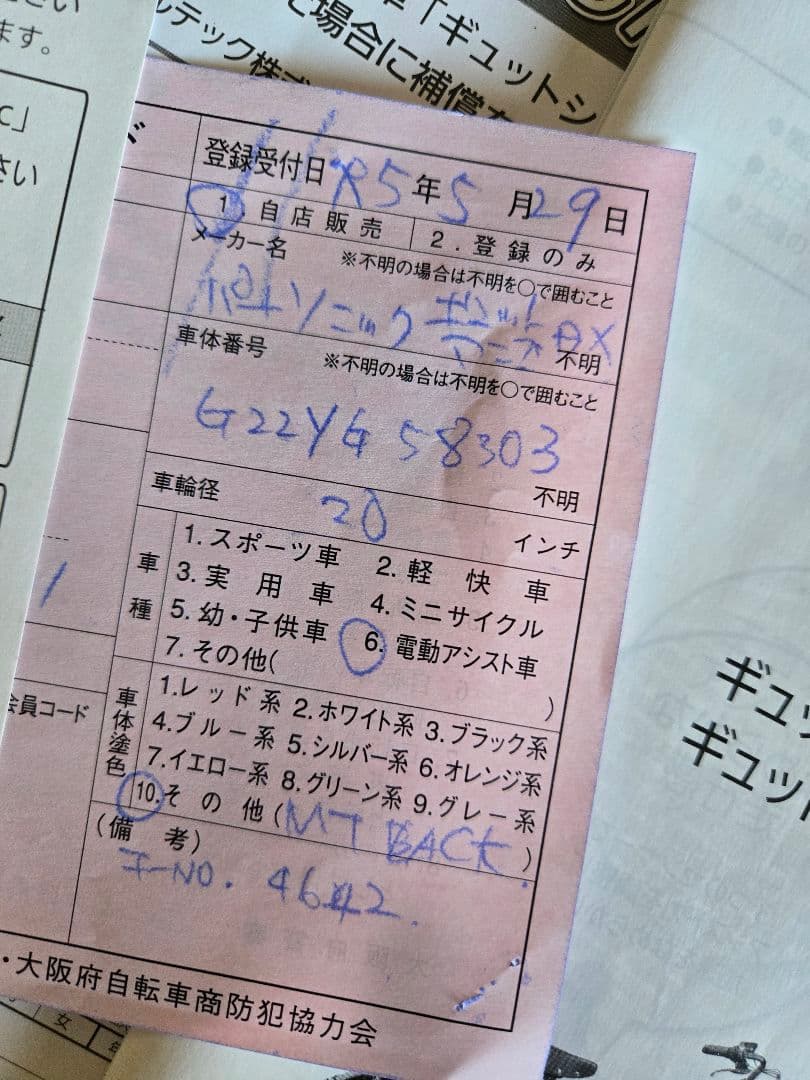 ください
ます。
「ギュットシ
ルテック株式
場合に補償を
c」
さい
登録受付日 R5年5月29日
1.自店販売 2.登録のみ
メーカー名 ※不明の場合は不明を○で囲むこと
パナソニック
DX 不明
車体番号 ※不明の場合は不明を○で囲むこと
G22YG58303
不明
車輪径 20 インチ
車種
1.スポーツ車 2.軽快車
3.実用車 4.ミニサイクル
5.幼・子供車 6.電動アシスト車
7.その他( )
車体塗色
1.レッド系 2.ホワイト系 3.ブラック系
4.ブルー系 5.シルバー系 6.オレンジ系
7.イエロー系 8.グリーン系 9.グレー系
10.その他(MT BACK)
(備考)
キーNO. 4642.
会員コード
・大阪府自転車商防犯協力会
女
ギュッ
ギュット